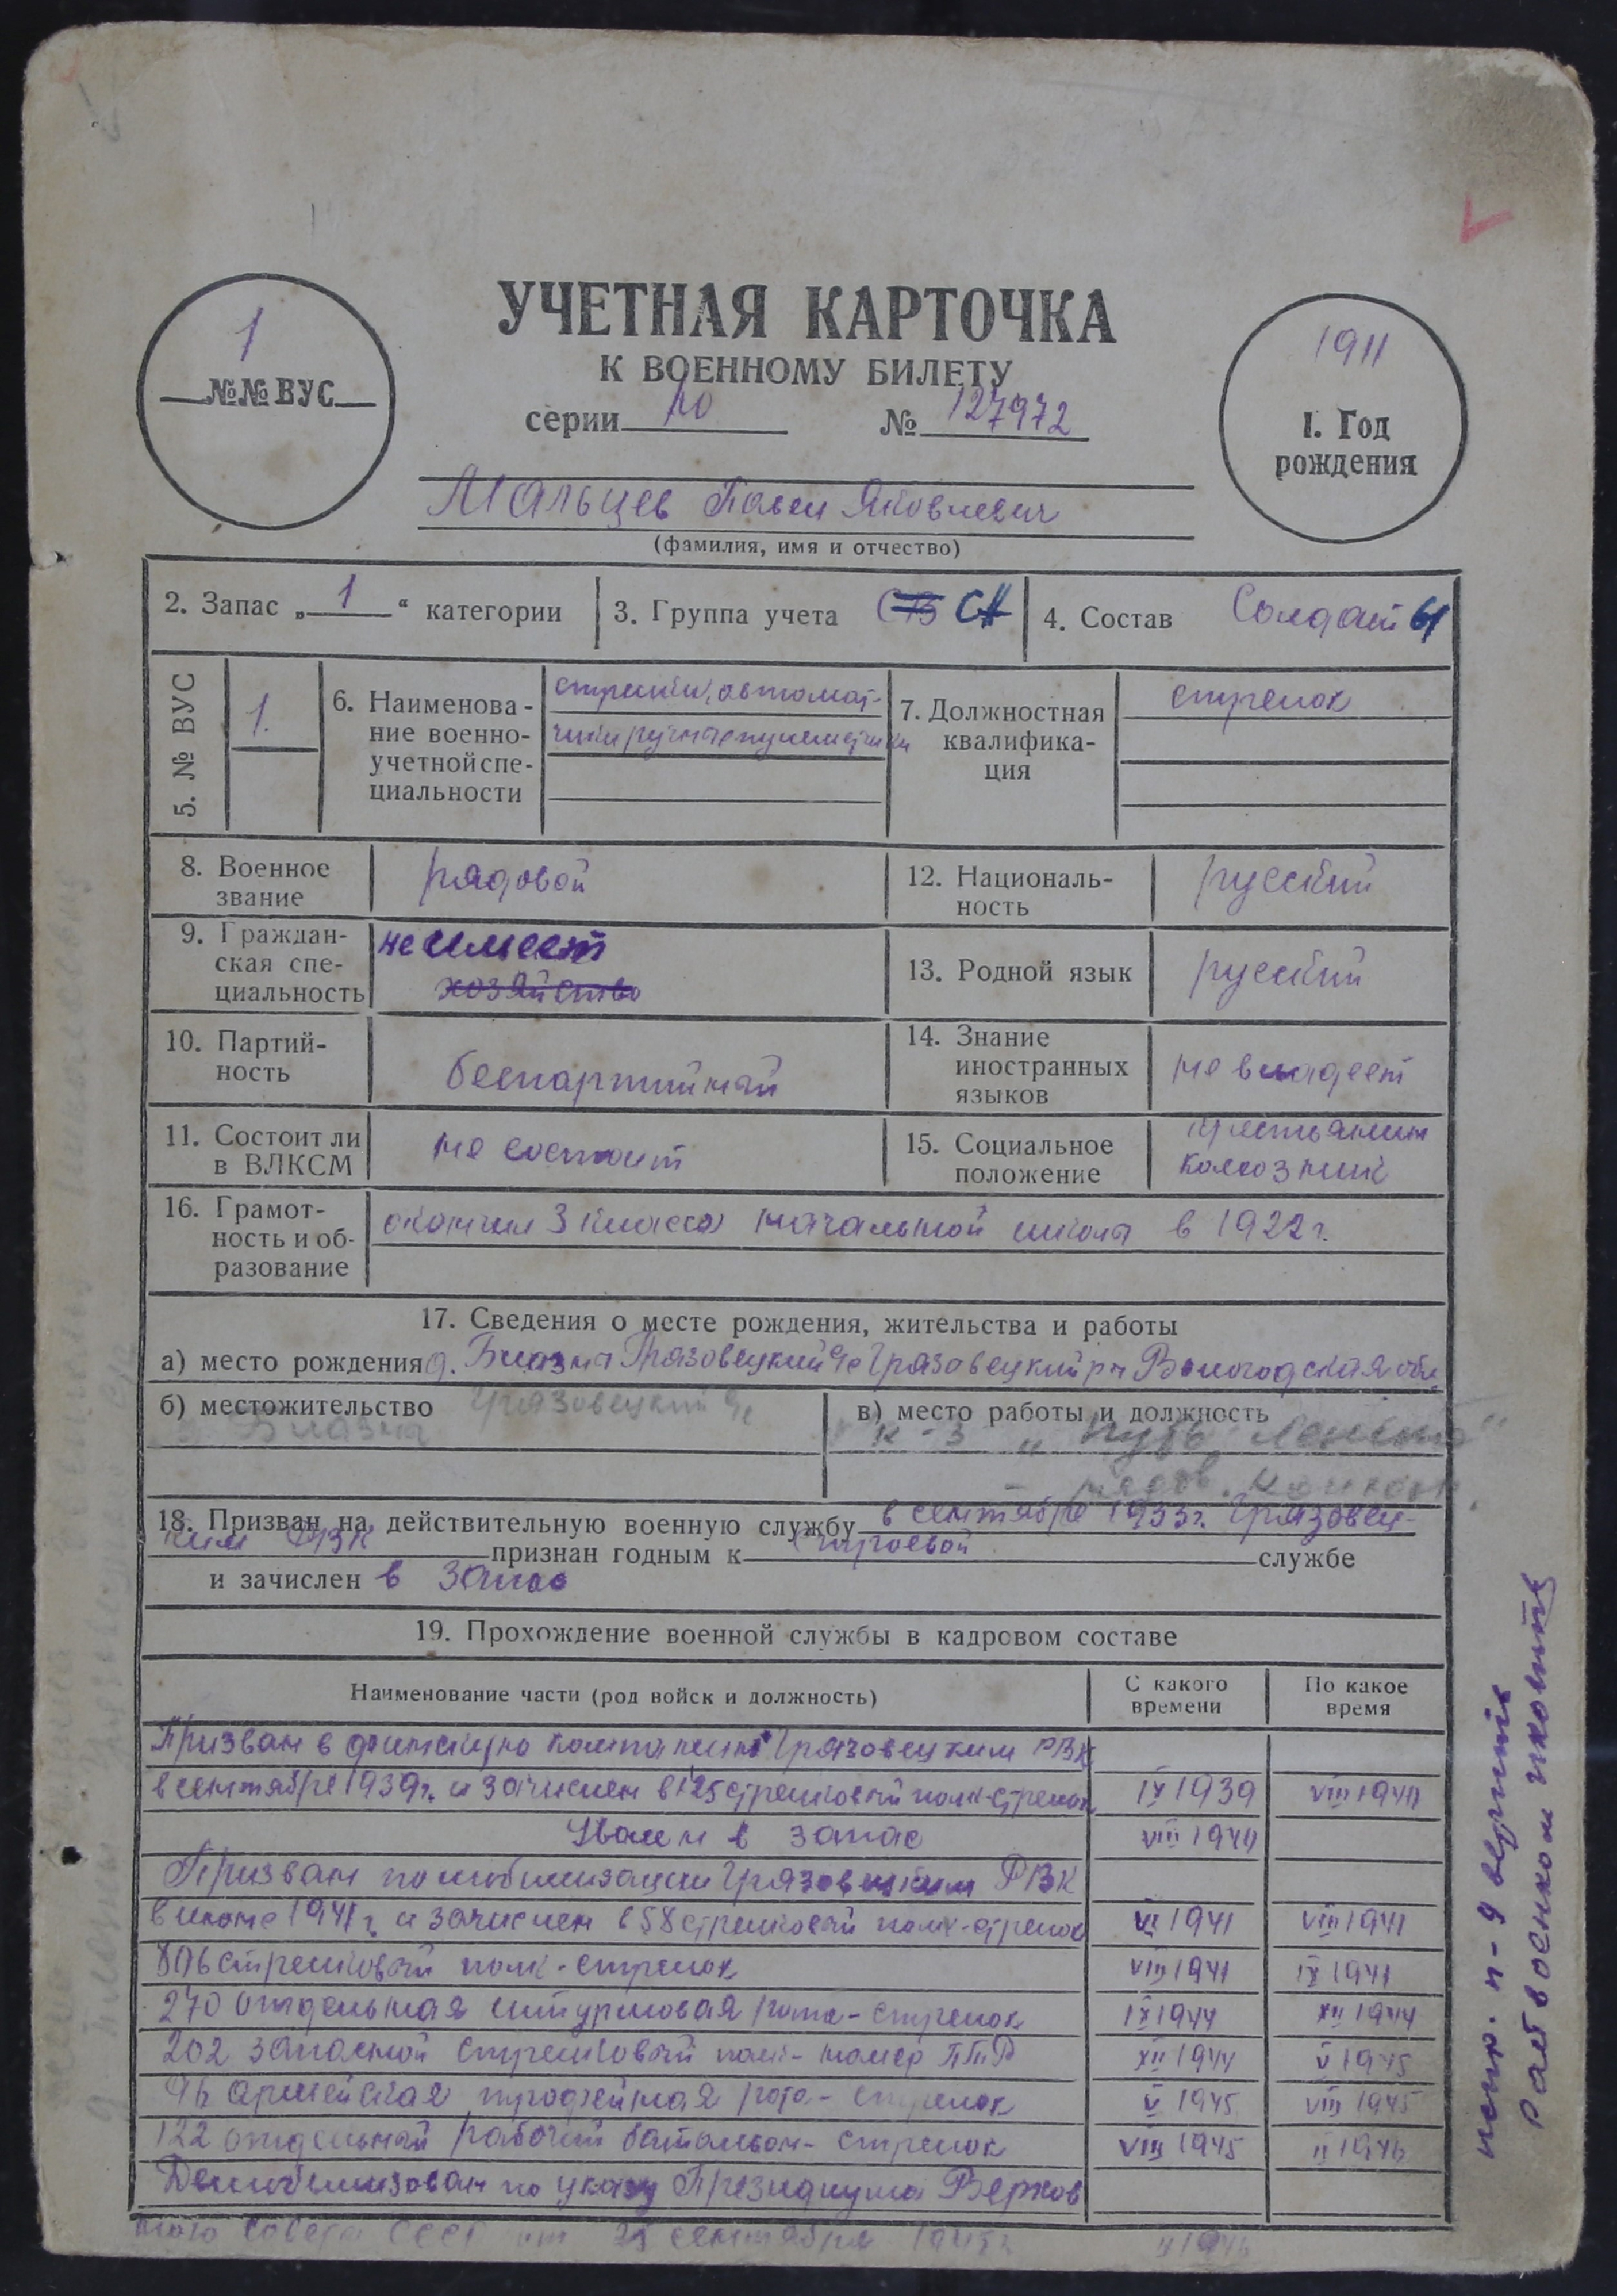 УЧЕТНАЯ КАРТОЧКА
К ВОЕННОМУ БИЛЕТУ
серии по № 127972
1
№№ ВУС
1911
1. Год
рождения
Мальцев Павел Яковлевич
(фамилия, имя и отчество)
2. Запас „ 1 “ категории
3. Группа учета СВ СА
4. Состав Солдаты
5. № ВУС 1.
6. Наименова-
ние военно-
учетной спе-
циальности
стрелки, автомат-
чики ручные пулеметчики
7. Должностная
квалифика-
ция
стрелок
8. Военное
звание
рядовой
12. Националь-
ность
русский
9. Граждан-
ская спе-
циальность
не имеет
хозяйство
13. Родной язык русский
10. Партий-
ность
беспартийный
14. Знание
иностранных
языков
не владеет
11. Состоит ли
в ВЛКСМ
не состоит
15. Социальное
положение
крестьянин
колхозник
16. Грамот-
ность и об-
разование
окончил 3 класса начальной школы в 1922 г.
17. Сведения о месте рождения, жительства и работы
а) место рождения д. Блазна Грязовецкий Грязовецкий рн Вологодская обл
б) местожительство Грязовецкий
Блазна
в) место работы и должность
к-з „Путь Ленина“
рядов.
18. Призван на действительную военную службу в сентябре 1933 г. Грязовец-
ким РВК признан годным к строевой службе
и зачислен в запас
19. Прохождение военной службы в кадровом составе
Наименование части (род войск и должность)
С какого
времени
По какое
время
Призван в финскую компанию Грязовецким РВК
в сентябре 1939 г. и зачислен в 125 стрелковый полк-стрелок IX 1939 VIII 1940
Уволен в запас VIII 1940
Призван по мобилизации Грязовецким РВК
в июне 1941 г. и зачислен в 58 стрелковый полк-стрелок VI 1941 VIII 1941
806 стрелковый полк-стрелок VIII 1941 IX 1941
270 отдельная штурмовая рота-стрелок IX 1944 XII 1944
202 запасной стрелковый полк-номер ПТР XII 1944 V 1945
96 армейская трофейная рота-стрелок V 1945 VIII 1945
122 отдельный рабочий батальон-стрелок VIII 1945 II 1946
Демобилизован по указу Президиума Верхов
ного Совета СССР от 25 сентября 1945 г. II 1946
испр. п-9 верить
Райвоенком